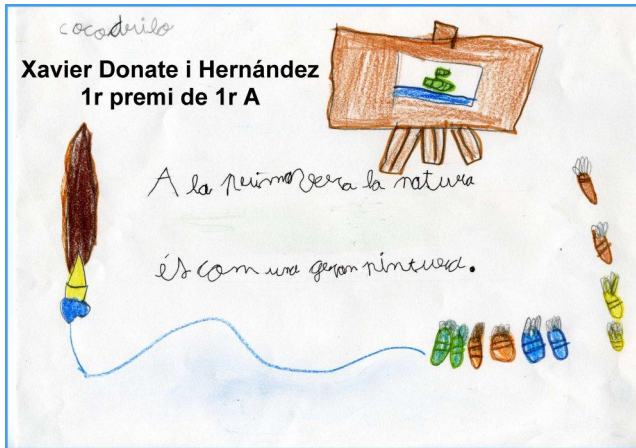 cocodrilo
Xavier Donate i Hernández
1r premi de 1r A
A la primavera la natura
és com una gran pintura.